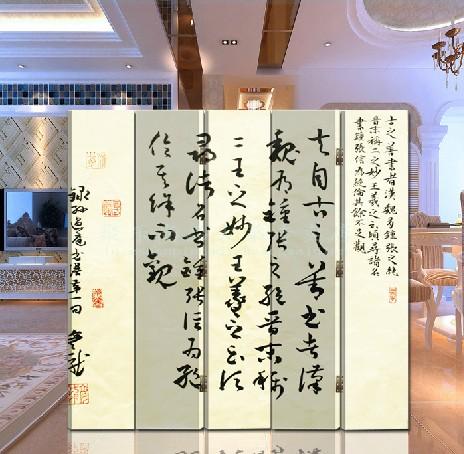 士之善書者漢魏有鍾張之絶
晋末称二之妙王羲之云頃尋諸名
書鍾張信为絶倫其餘不足觀
夫自古之善书者漢
魏有鍾張之絶晋末稱
二王之妙王羲之云頃
尋諸名書鍾張信为絶
倫其餘不觀
録孙过庭书